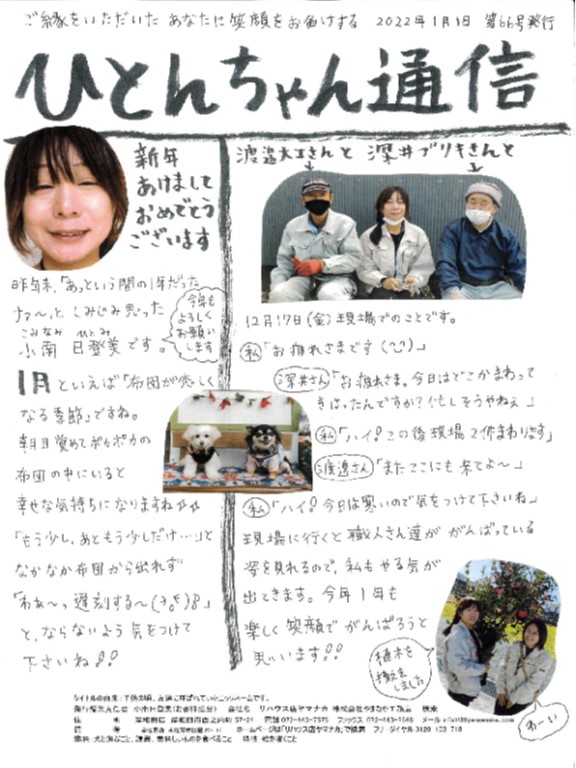 ご縁をいただいた あなたに笑顔をお届けする 2022年1月1日 第66号発行
ひとんちゃん通信
新年
あけまして
おめでとう
ございます
昨年末、「あっという間の1年だった
なァ〜」と しみじみ思った
こみなみ ひとみ
小南 日登美です。
今年も
よろしく
お願い
します
1月といえば「布団が恋しく
なる季節」ですね。
朝目覚めてポカポカの
布団の中にいると
幸せな気持ちになりますね
「もう少し、あともう少しだけ…」と
なかなか布団から出れず
「わぁ〜っ遅刻する〜
と、ならないよう 気をつけて
下さいね!!
渡邉大工さんと 深井ブリキさんと
12月17日(金)現場でのことです。
私「お疲れさまです
深井さん「お疲れさま。今日はどこかまわって
きはったんですか?忙しそうやねぇ」
私「ハイ!この後現場2件まわります」
渡邉さん「またここにも来てよ〜」
私「ハイ!今日は寒いので気をつけて下さいね」
現場に行くと職人さん達が がんばっている
姿を見れるので、私もやる気が
出てきます。今年1年も
楽しく笑顔で がんばろうと
思います!!
植木を
植えました
わーい
タイトルの由来:子供の頃、友達に呼ばれていたニックネームです。